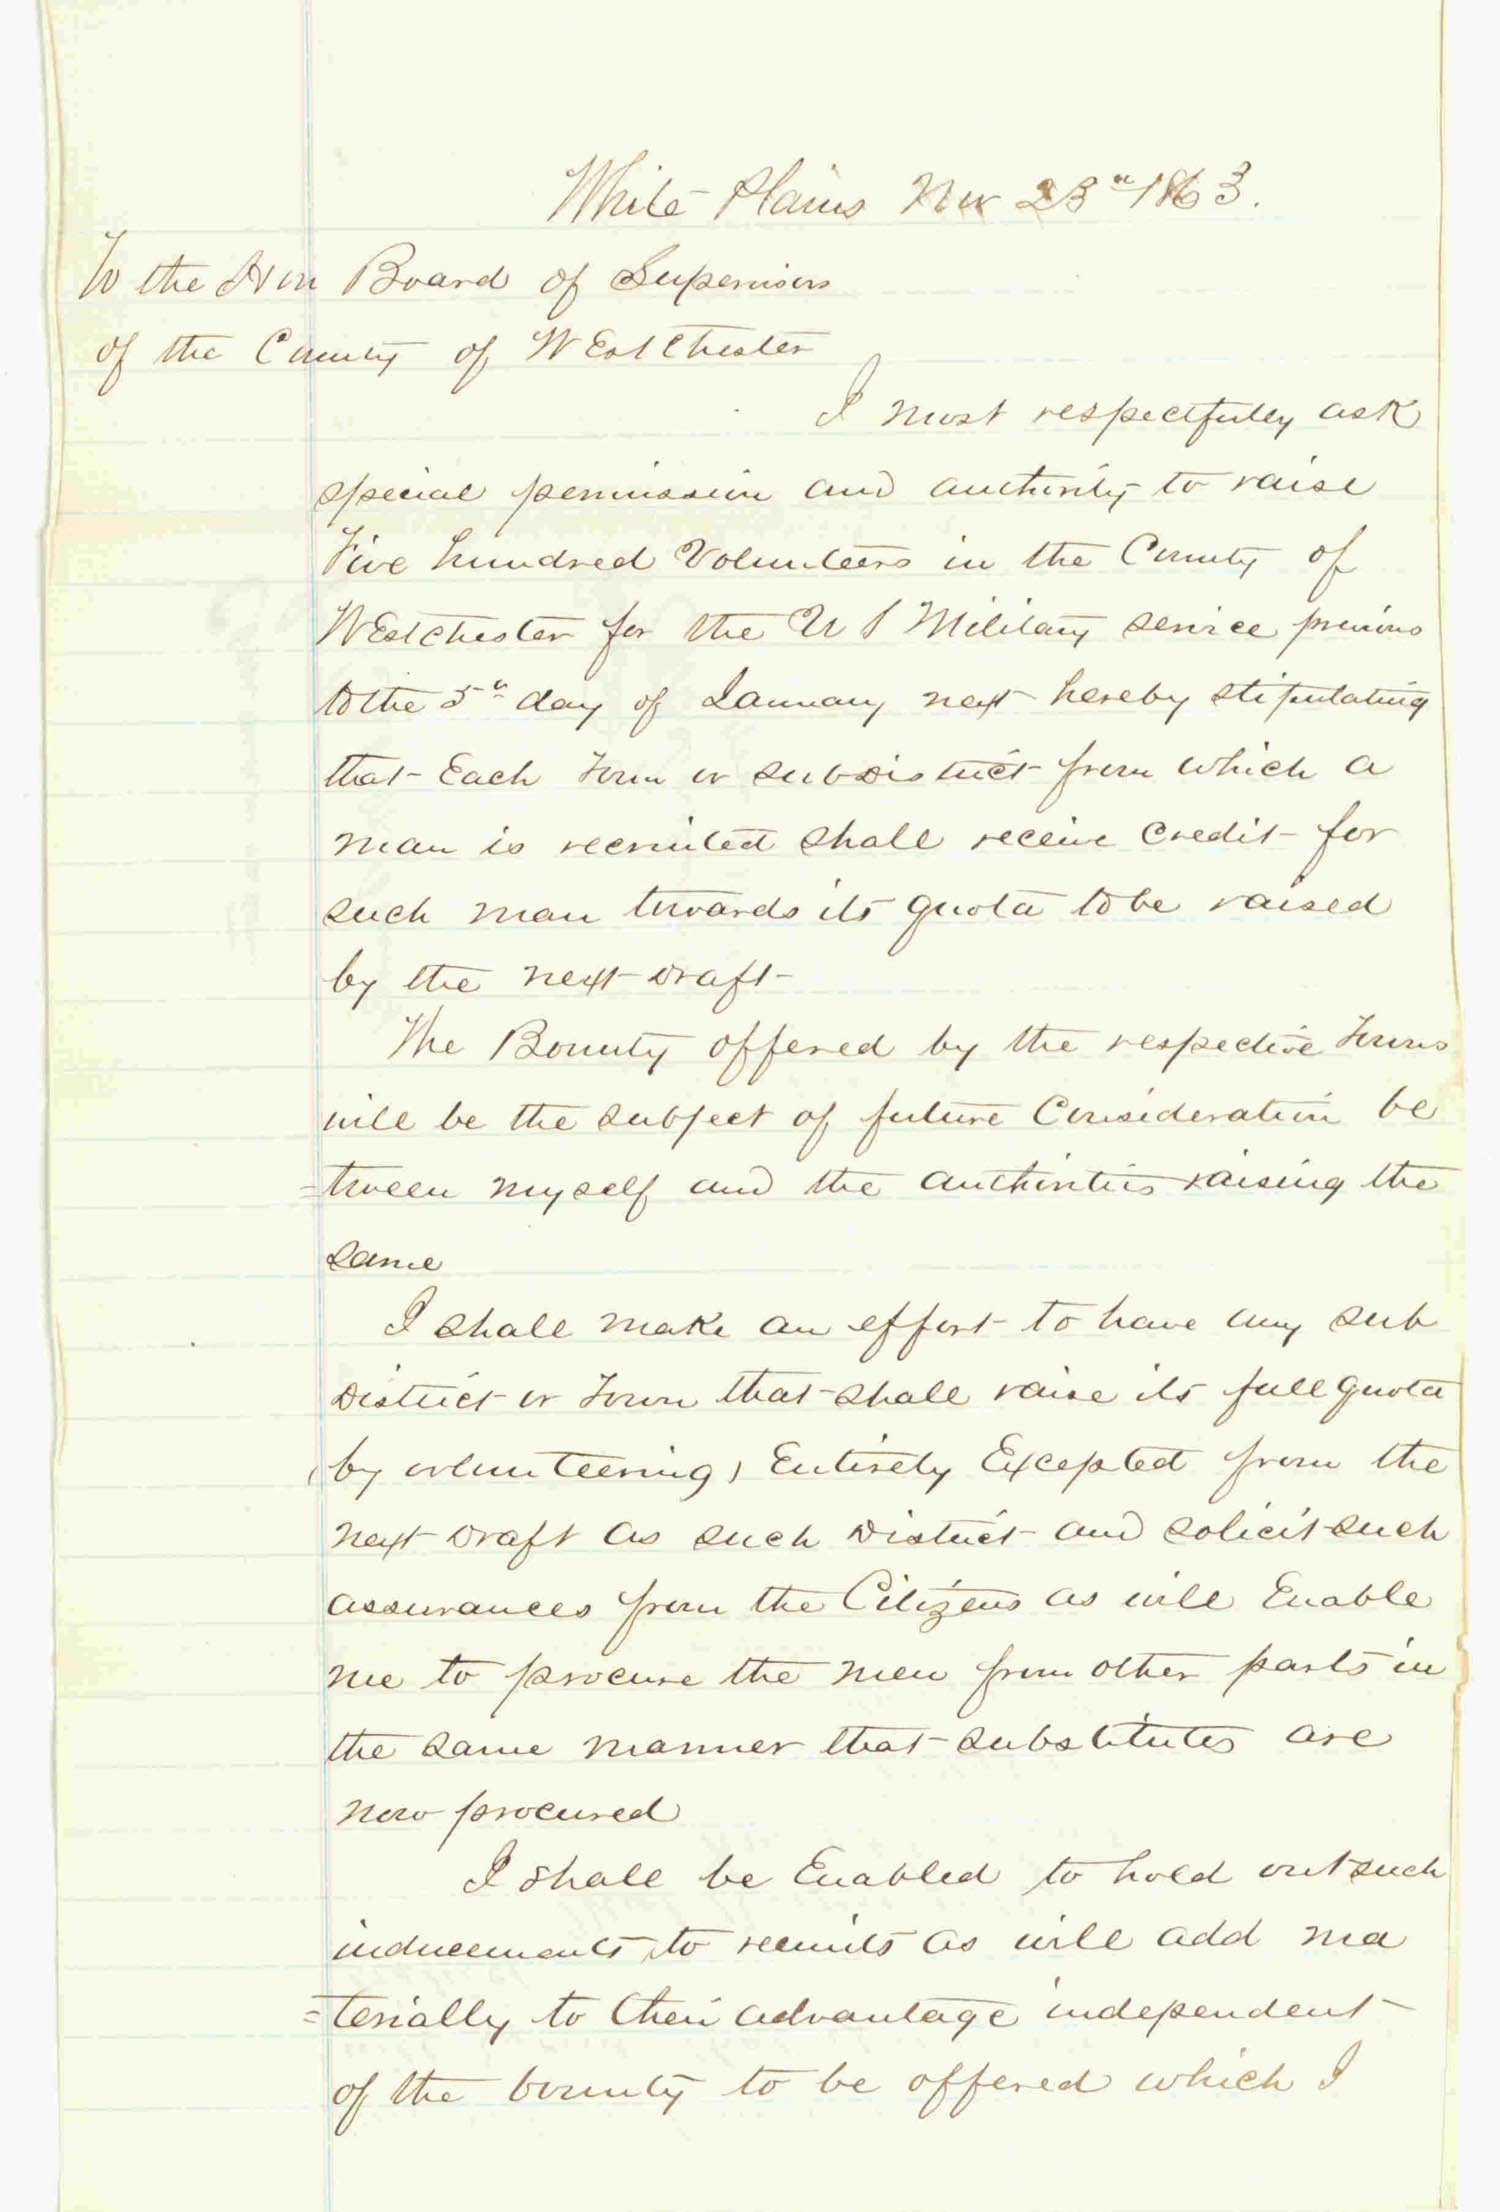 White Plains Nov 23" 1863.
To the Hon Board of Supervisors
of the County of WEstchester
I most respectfully ask
special permission and authority to raise
Five hundred Volunteers in the County of
WEstchester for the U S Military service previous
to the 5" day of January next hereby stipulating
that Each Town or subdistrict from which a
man is recruited shall receive credit for
such man towards its quota to be raised
by the next draft
The Bounty offered by the respective Towns
will be the subject of future Consideration be
=tween myself and the authorities raising the
same
I shall make an effort to have any sub
District or Town that shall raise its full quota
(by volunteering) Entirely Excepted from the
next Draft as such District and solicit such
assurances from the Citizens as will Enable
me to procure the men from other parts in
the same manner that substitutes are
now procured
I shall be Enabled to hold out such
inducements to recruits as will add ma
=terially to their advantage independent
of the bounty to be offered which I